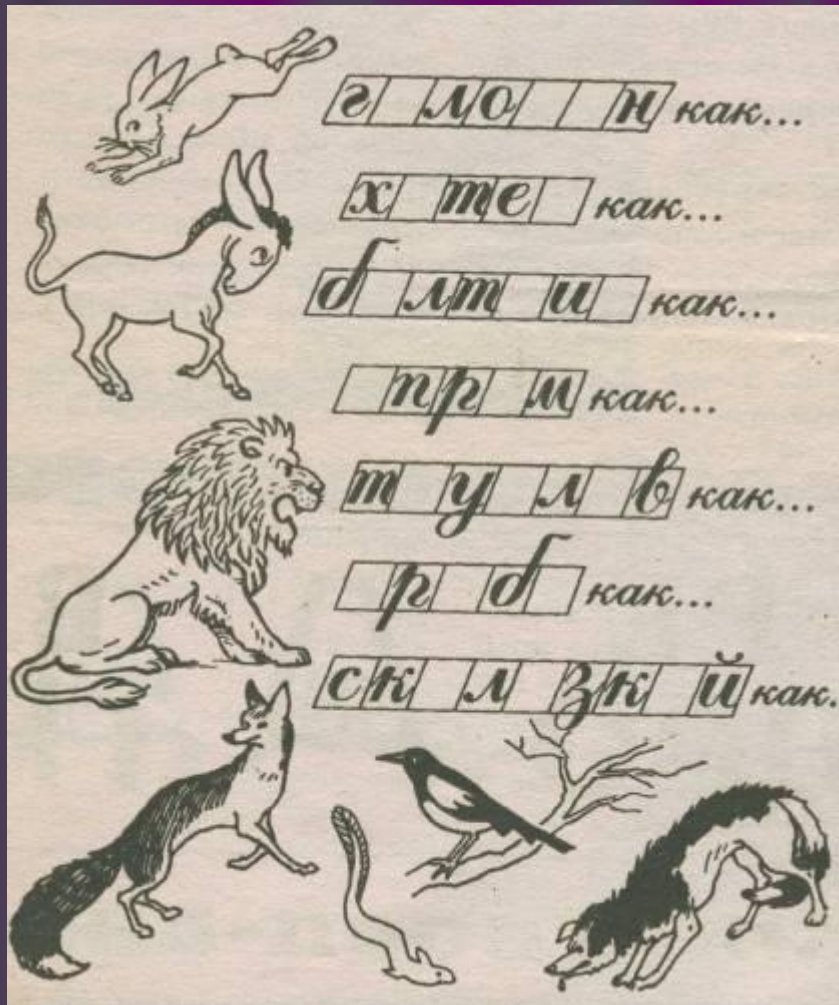 г ло  н как...
х те как...
б лт и как...
пр м как...
т у л в как...
р б как...
ск л зк й как.